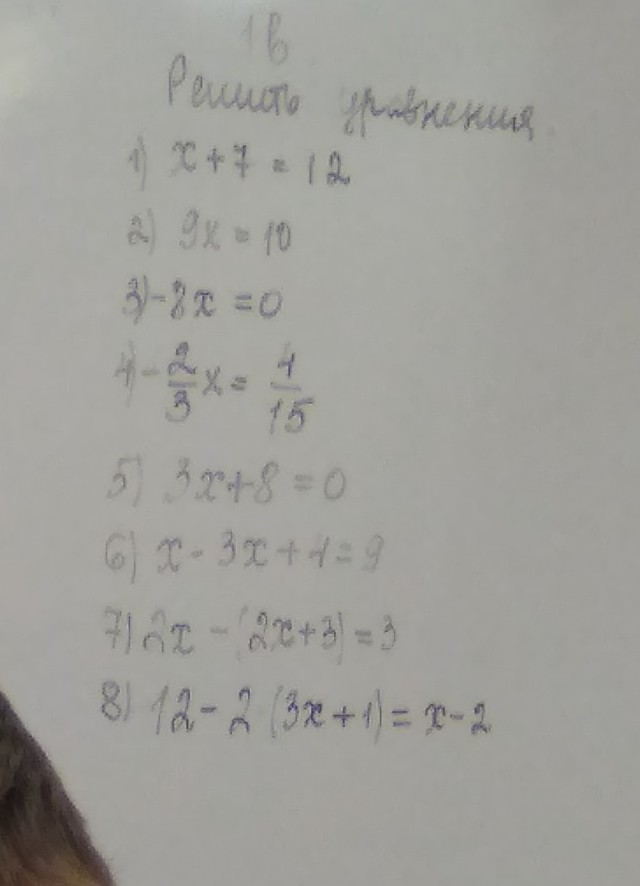 1в
Решить уравнения.
1) x + 7 = 12
2) 9x = 10
3) -8x = 0
4) -2/3 x = 4/15
5) 3x + 8 = 0
6) x - 3x + 4 = 9
7) 2x - (2x + 3) = 3
8) 12 - 2 (3x + 1) = x - 2